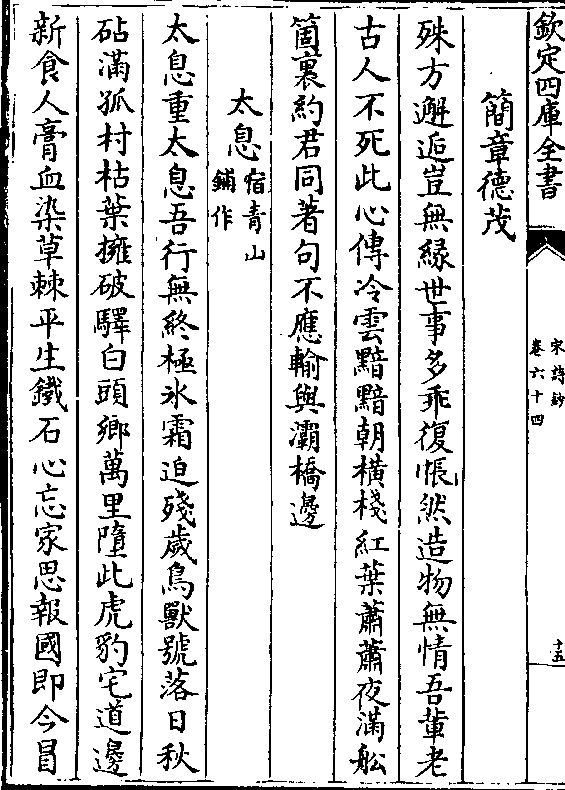 欽定四庫全書
宋詩鈔
卷六十四
十五
簡章德茂
殊方邂逅豈無緣世事多乖復悵然造物無情吾輩老
古人不死此心傳冷雲黯黯朝橫棧紅葉蕭蕭夜滿舩
箇裏約君同著句不應輸與灞橋邊
太息宿青山
鋪作
太息重太息吾行無終極氷霜迫殘歲鳥獸號落日秋
砧滿孤村枯葉擁破驛白頭鄉萬里墮此虎豹宅道邊
新食人膏血染草棘平生鐵石心忘家思報國即今冒